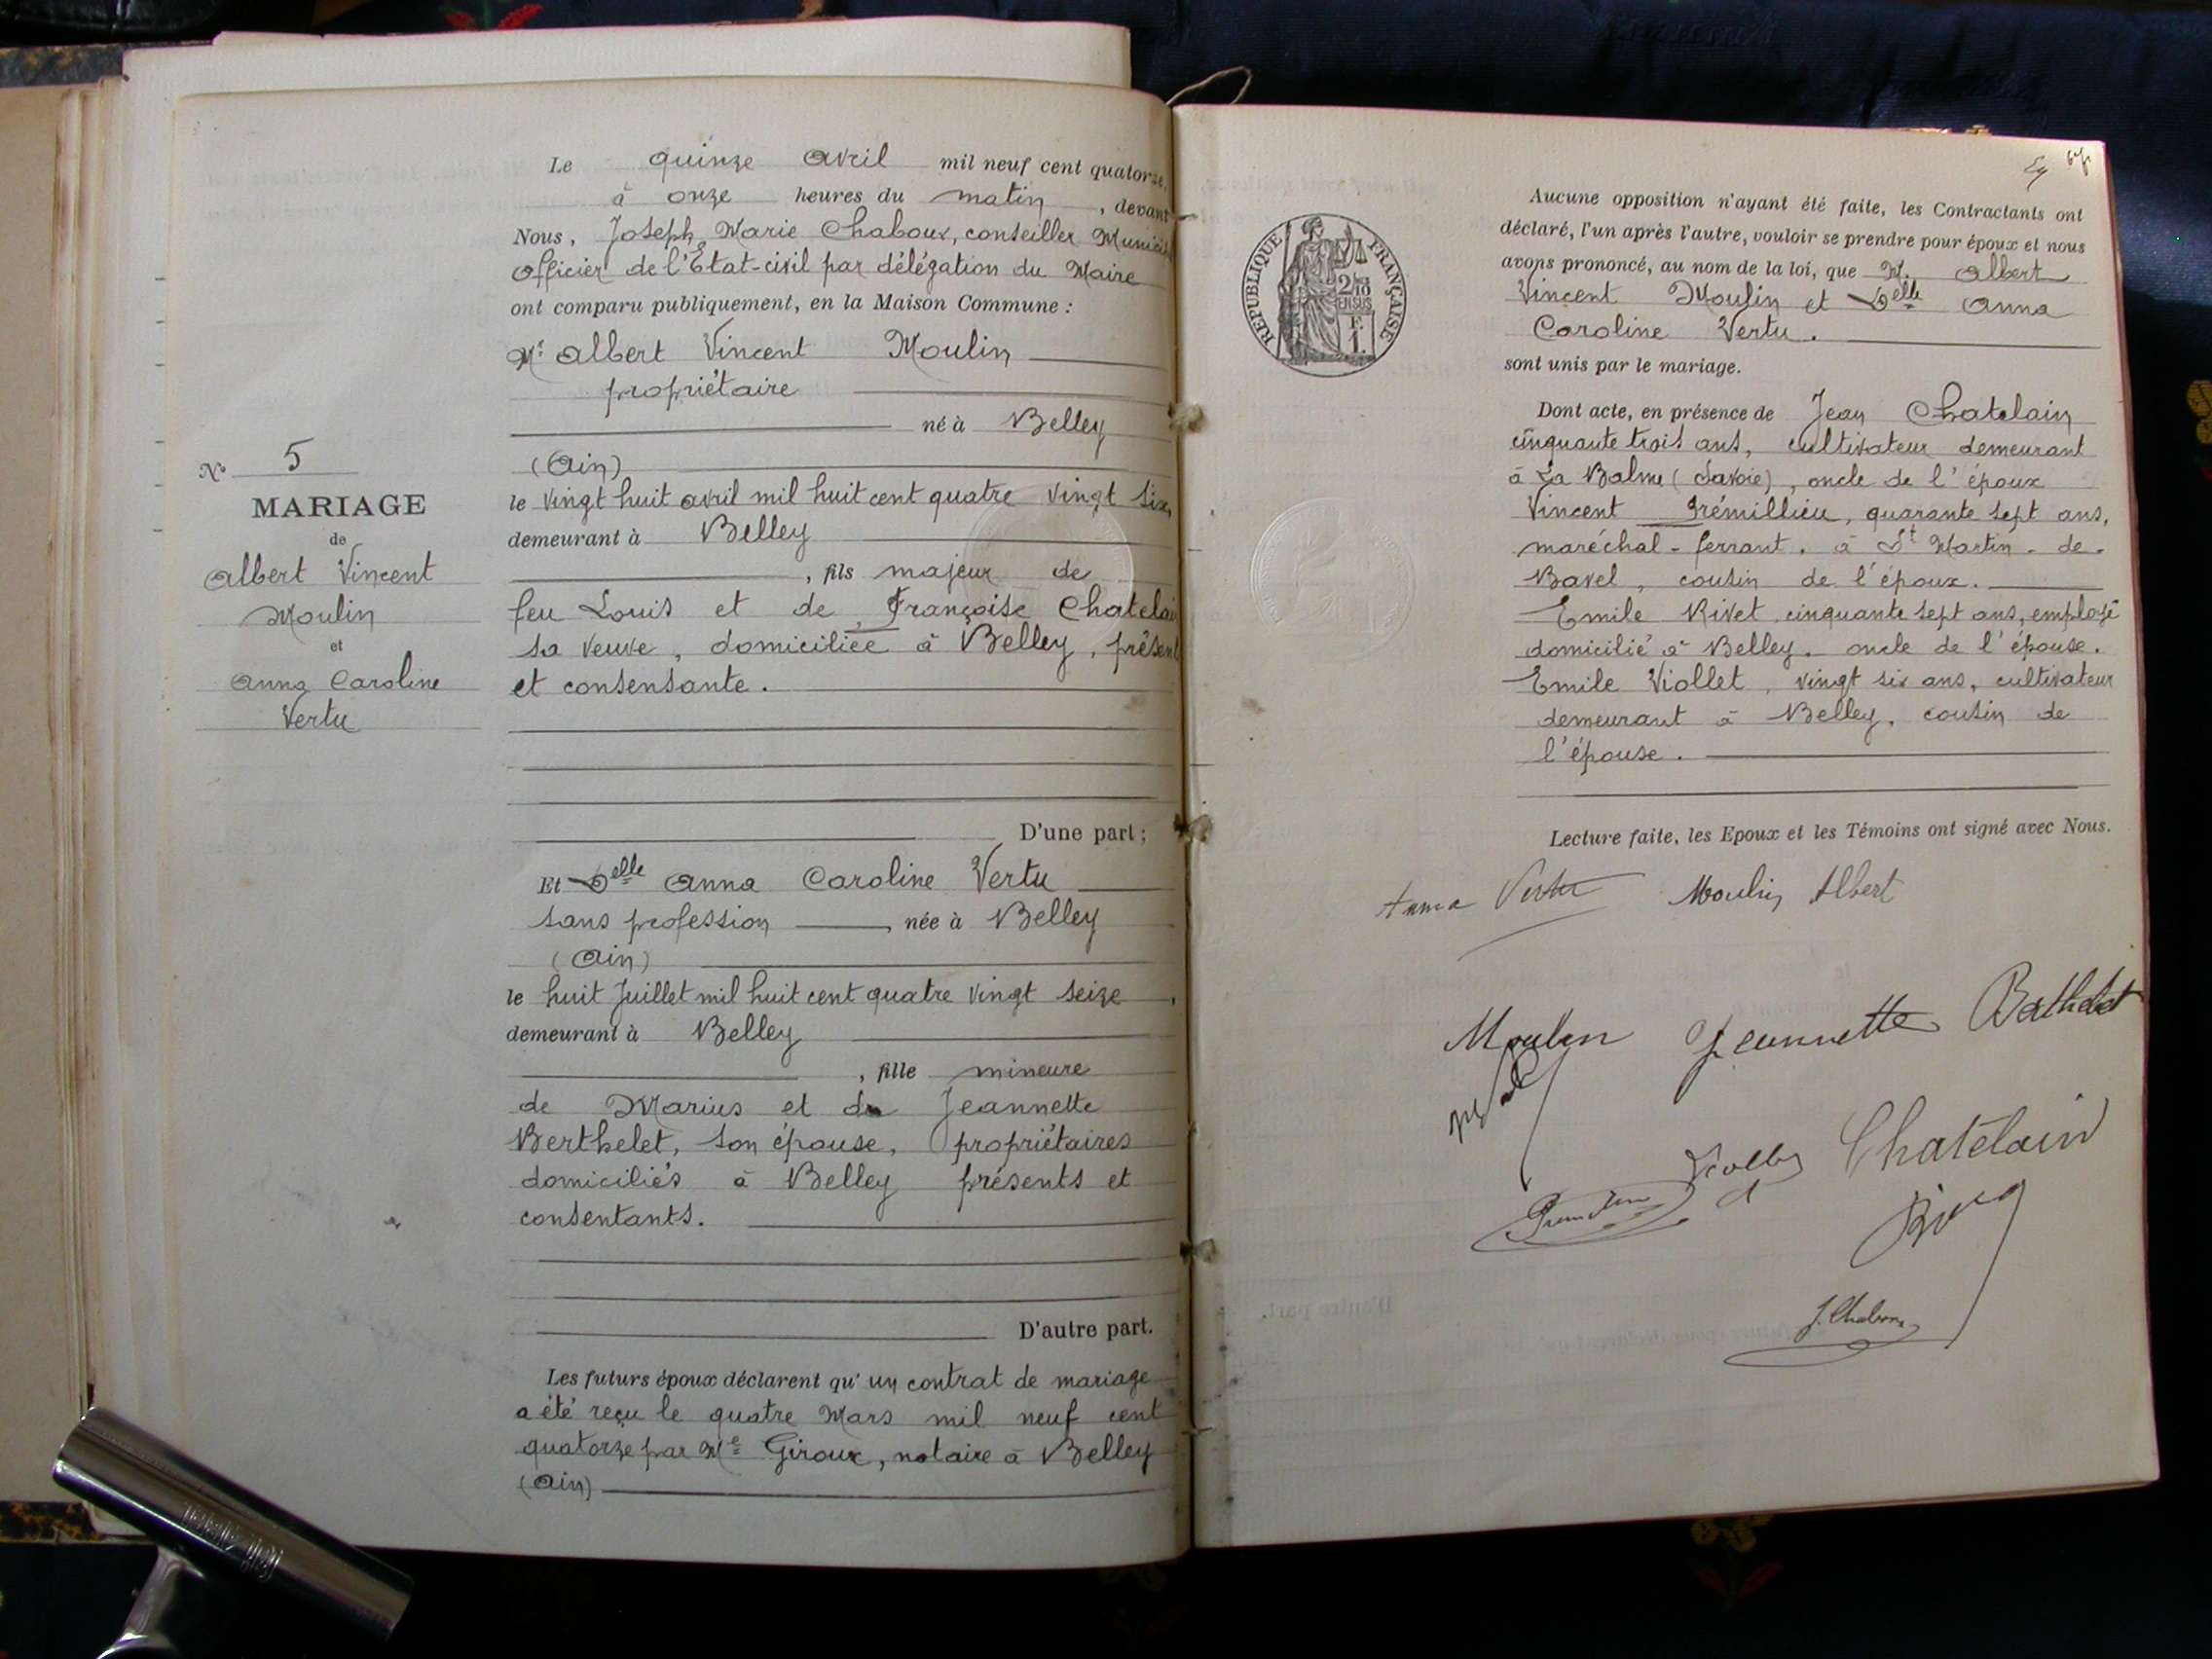 Le quinze avril mil neuf cent quatorze,
à onze heures du matin, devant
Nous, Joseph Marie Chaboux, conseiller Munici
Officier de l'Etat-civil par délégation du Maire
ont comparu publiquement, en la Maison Commune :
Mr albert Vincent Moulin
propriétaire
né à Belley
(Ain)
le vingt huit avril mil huit cent quatre vingt six,
demeurant à Belley
, fils majeur de
feu Louis et de Françoise Chatelai
sa veuve, domiciliée à Belley, présent
et consensante.
D'une part ;
Et Delle Anna Caroline Vertu
sans profession, née à Belley
(Ain)
le huit Juillet mil huit cent quatre vingt seize,
demeurant à Belley
, fille mineure
de Marius et de Jeannette
Berthelet, son épouse, propriétaires
domiciliés à Belley présents et
consentants.
D'autre part.
Les futurs époux déclarent qu'un contrat de mariage
a été reçu le quatre Mars mil neuf cent
quatorze par Me Giroux, notaire à Belley
(Ain)
No 5
MARIAGE
de
Albert Vincent
Moulin
et
Anna Caroline
Vertu
REPUBLIQUE FRANÇAISE
Aucune opposition n'ayant été faite, les Contractants ont
déclaré, l'un après l'autre, vouloir se prendre pour époux et nous
avons prononcé, au nom de la loi, que M. Albert
Vincent Moulin et Delle Anna
Caroline Vertu.
sont unis par le mariage.
Dont acte, en présence de Jean Chatelain
cinquante trois ans, cultivateur demeurant
à La Balme (Savoie), oncle de l'époux
Vincent Trémillieu, quarante sept ans,
maréchal-ferrant. à St Martin-de-
Bavel, cousin de l'époux.
Emile Rivet cinquante sept ans, employé
domicilié à Belley. oncle de l'épouse.
Emile Viollet, vingt six ans, cultivateur
demeurant à Belley, cousin de
l'épouse.
Lecture faite, les Epoux et les Témoins ont signé avec Nous.
Anna Vertu Moulin Albert
Moulin Jeannette Bathelet
Chatelain
J. Chaboux